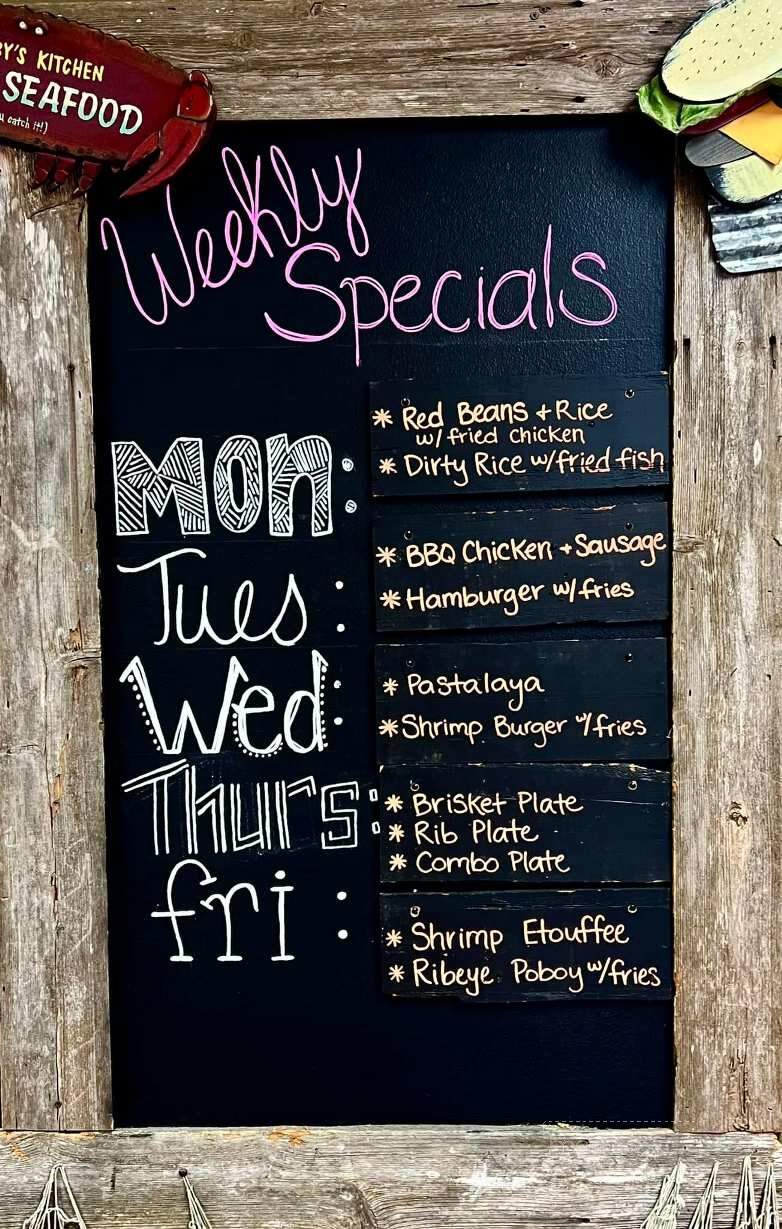 KITCHEN
SEAFOOD
catch it!)
Weekly
Specials
Mon:
* Red Beans + Rice
w/ fried chicken
* Dirty Rice w/fried fish
Tues:
* BBQ Chicken + Sausage
* Hamburger w/fries
Wed:
* Pastalaya
* Shrimp Burger w/fries
Thurs:
* Brisket Plate
* Rib Plate
* Combo Plate
fri:
* Shrimp Etouffee
* Ribeye Poboy w/fries